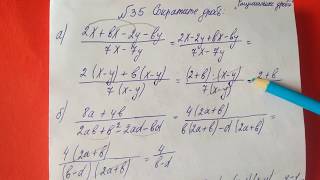 №35 Сократите дробь:
а) (2x+bx-2y-by)/(7x-7y) = (2x-2y+bx-by)/(7x-7y) =
(2(x-y)+b(x-y))/(7(x-y)) = ((2+b)·(x-y))/(7(x-y)) = (2+b)/
б) (8a+4b)/(2ab+b²-2ad-bd) = (4(2a+b))/(b(2a+b)-d(2a+b)) =
(4(2a+b))/((b-d)(2a+b)) = 4/(b-d)